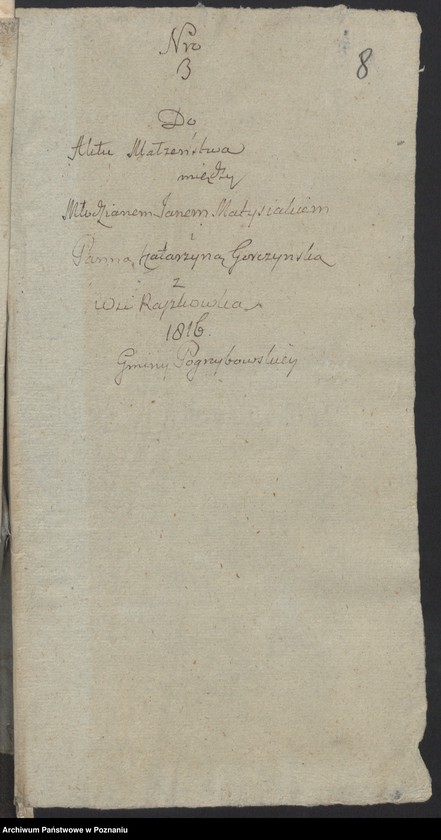 Nro
3
8
Do
Aktu Małżeństwa
między
Młodzianem Janem Matysiakiem
i
Panną Katarzyną Gorczynską
z
Wsi Raszkowka
1816.
Gminy Pogrzybowskiey
Archiwum Państwowe w Poznaniu